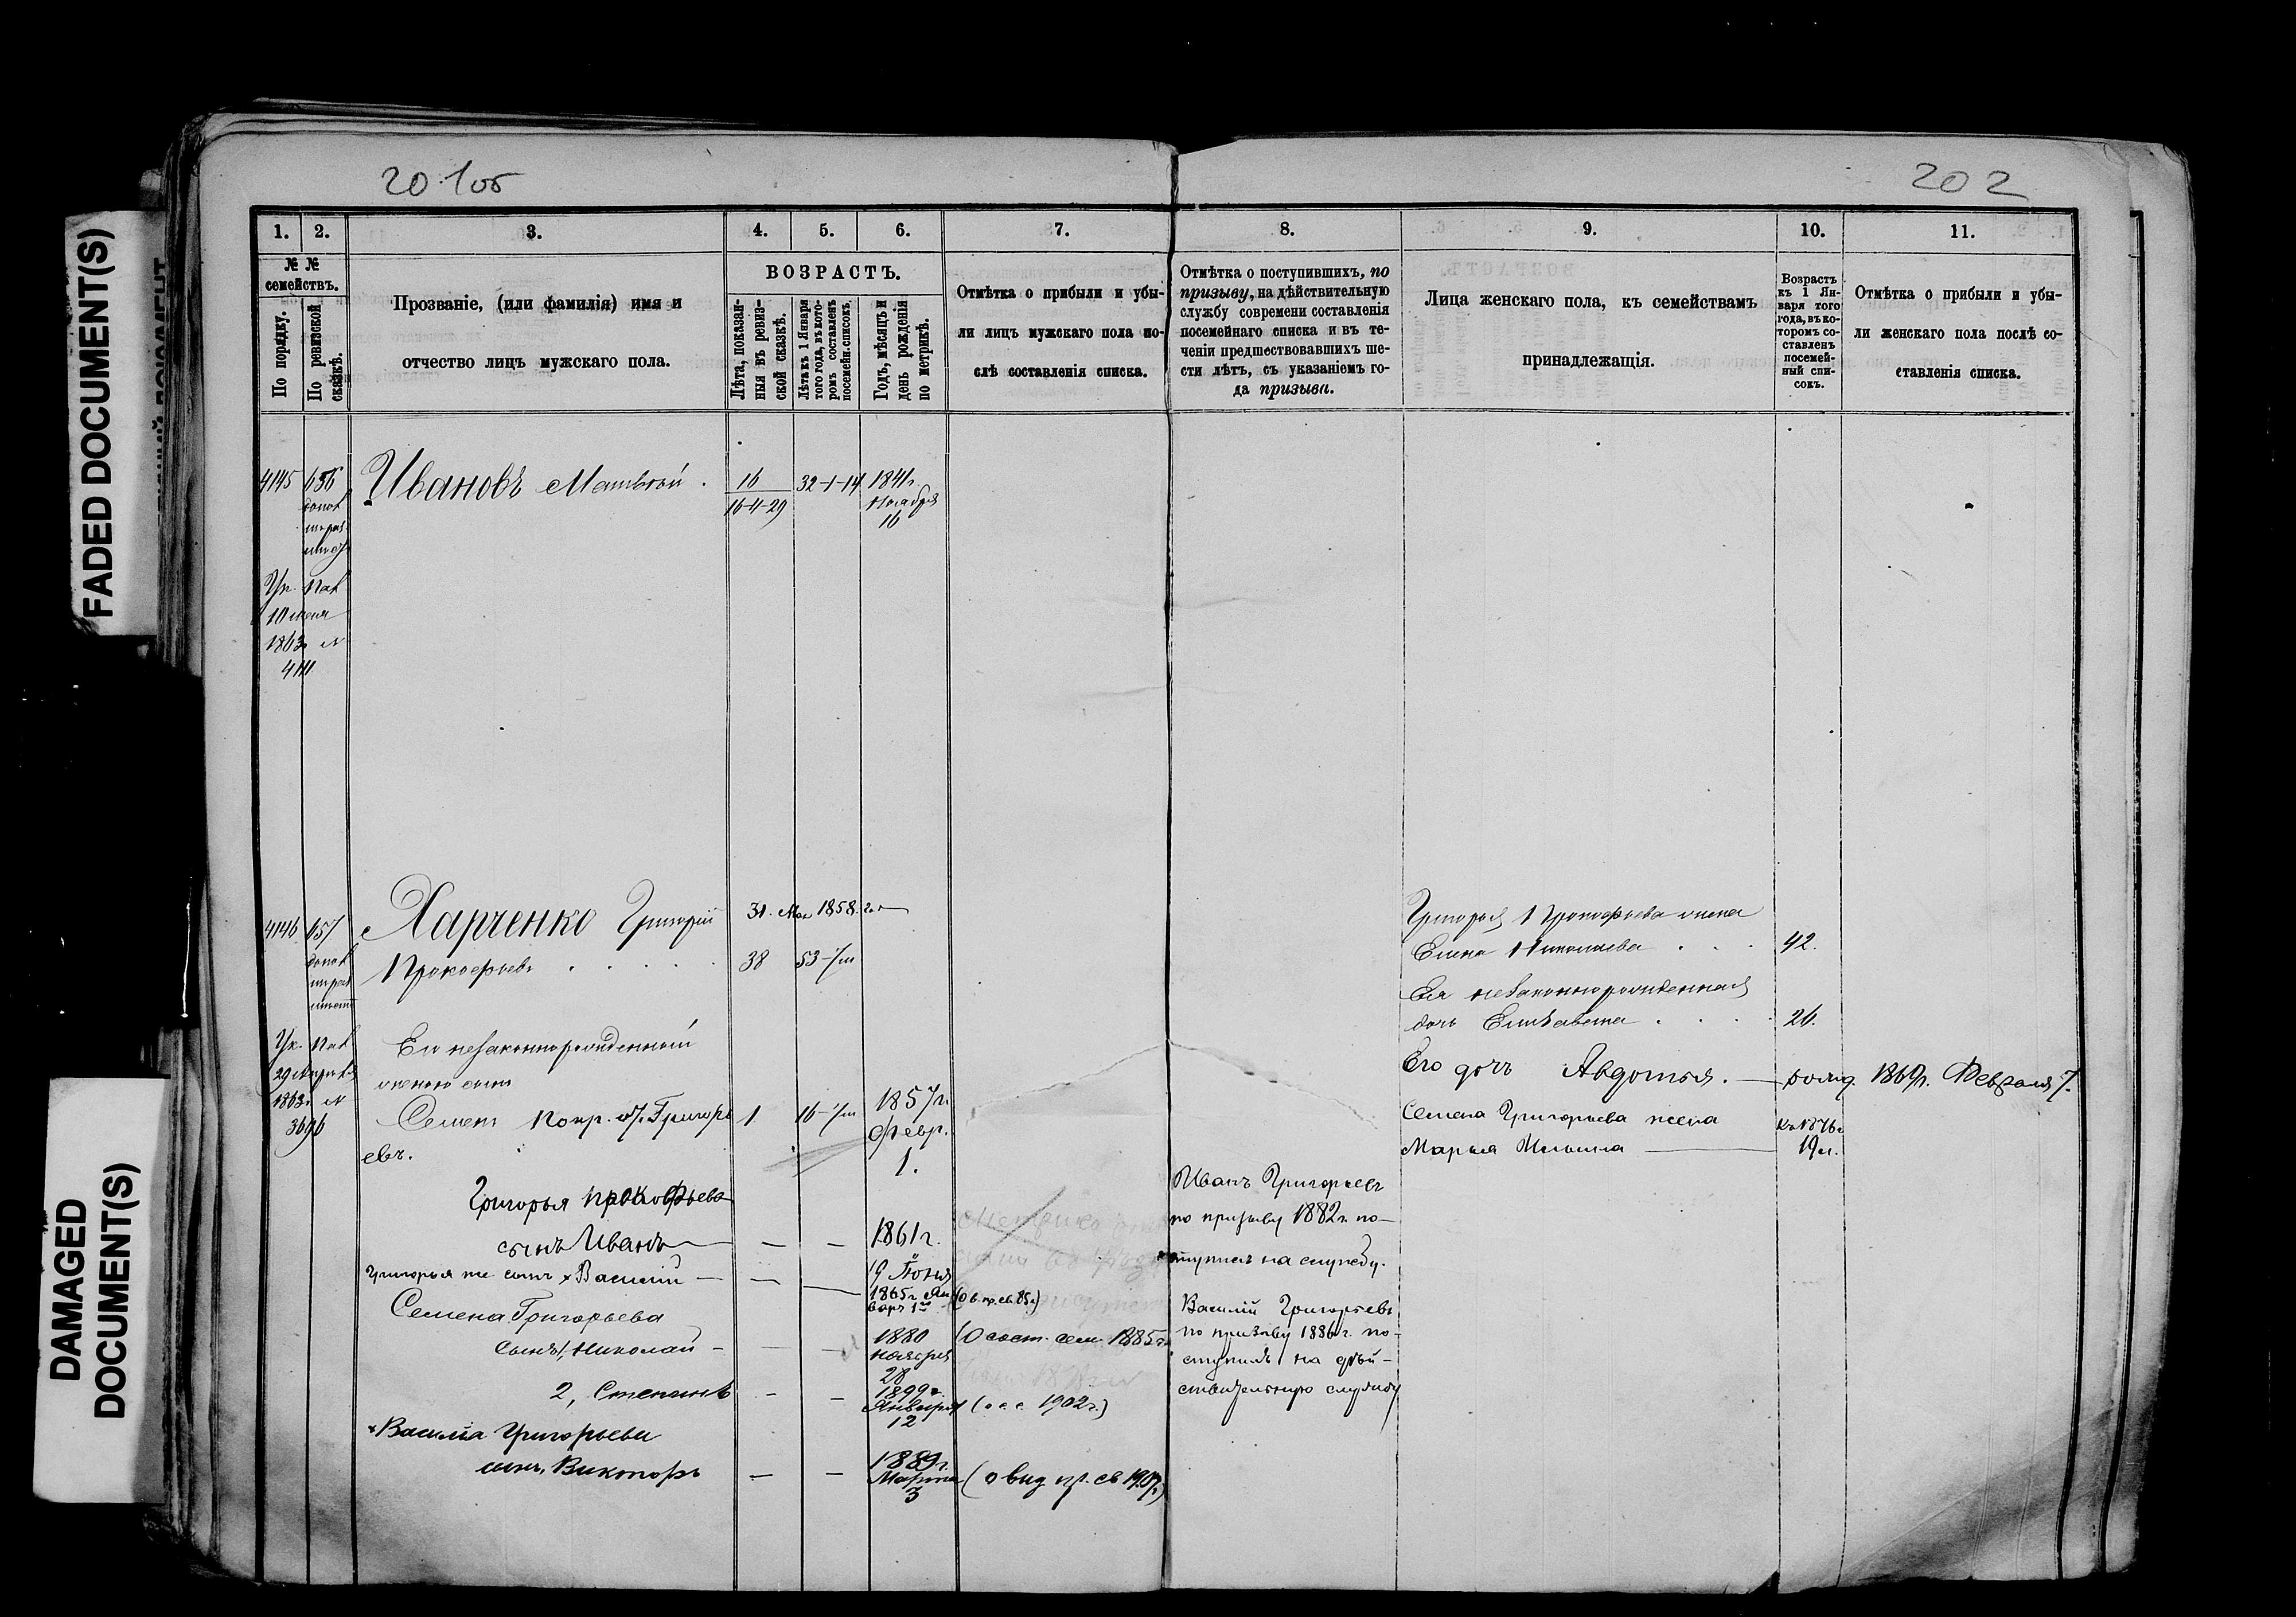 FADED DOCUMENTS(S)
DAMAGED
DOCUMENT(S)
201об
202
1. 2. 3. 4. 5. 6. 7. 8. 9. 10. 11.
№ №
семействъ.
По порядку.
По ревизской
сказкѣ.
Прозваніе, (или фамилія) имя и
отчество лицъ мужскаго пола.
ВОЗРАСТЪ.
Лѣта, показан-
ныя въ ревиз-
ской сказкѣ.
Лѣта къ 1 Января
того года, въ кото-
ромъ составленъ
посемейн. списокъ.
Годъ, мѣсяцъ и
день рожденія
по метрикѣ.
Отмѣтка о прибыли и убы-
ли лицъ мужскаго пола по-
слѣ составленія списка.
Отмѣтка о поступившихъ, по
призыву, на дѣйствительную
службу современи составленія
посемейнаго списка и въ те-
ченіи предшествовавшихъ ше-
сти лѣтъ, съ указаніемъ го-
да призыва.
Лица женскаго пола, къ семействамъ
принадлежащія.
Возрастъ
къ 1 Ян-
варя того
года, въ ко-
торомъ со-
ставленъ
посемей-
ный спи-
сокъ.
Отмѣтка о прибыли и убы-
ли женскаго пола послѣ со-
ставленія списка.
4145 656 Ивановъ Матвѣй . 16 32-1-14 1841г.
16-11-29 Ноября
16
Ук. Пал
10 июня
1863 №
4111
4146 657 Харченко Григорій 31. Мая 1858. г.
Прокофьевъ . . . . . 38 53-/m
Григорья Прокофьева жена
Елена Николаева . . . 42.
Ея незаконнорожденная
дочь Елизавета . . . . 26.
Ук. Пал
29
1863г №
3696
Его незаконнорожденный
жены сынъ
Семенъ Григорь 1. 16-/m 1857г.
евъ. Февр.
1.
Его дочь Авдотья. — рожд. 1869г. Февраля 7.
Семена Григорьева жена
Марья Ильина — 19л.
Григорья Прокофьева
сынъ Иванъ — — — 1861г.
19 Іюня
Иванъ Григорьевъ
по призыву 1882г. по-
ступилъ на службу.
Григорья же сынъ × Василій — — — 1865г. Ян
варь 1го (о в. пр. св. 85г.)
Семена Григорьева
сынъ 1, Николай — — — 1880
ноября
28
(О сост. сем. 1885г.
Василій Григорьевъ
по призыву 1886г. по-
ступилъ на дѣй-
ствительную службу
2, Степанъ — — 1899г.
Января
12
(о с. с. 1902г.)
×Василія Григорьева
сынъ, Викторъ — — 1889г.
Марта
3
(о вид пр. св 1907г.)